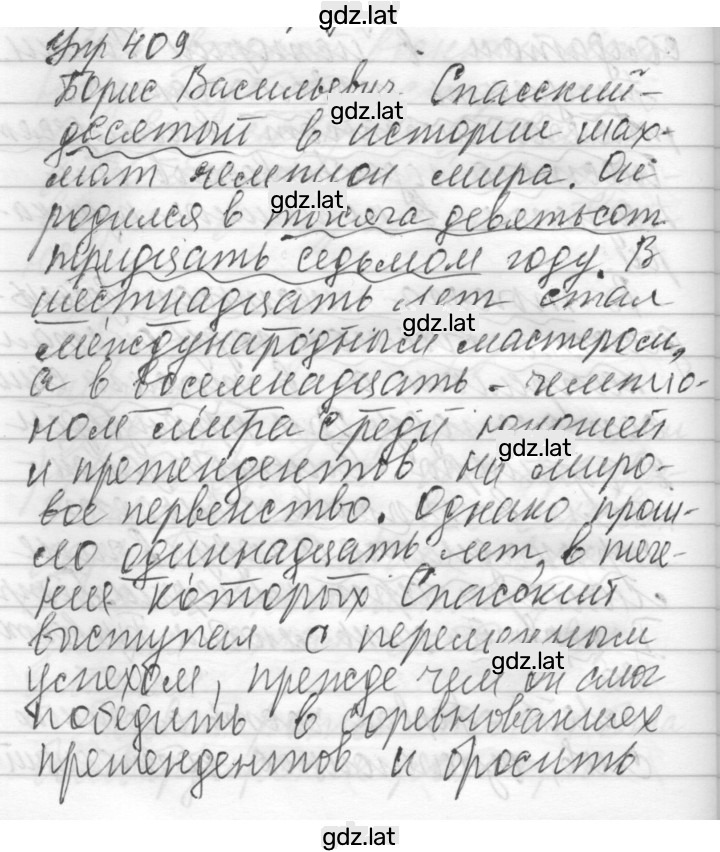 gdz.lat
Упр 409
Борис Васильевич Спасский -
gdz.lat
десятый в истории шах-
мат чемпион мира. Он
gdz.lat
родился в тысяча девятьсот
тридцать седьмом году. В
шестнадцать лет стал
gdz.lat
международным мастером,
а в восемнадцать - чемпио-
ном мира среди юношей
gdz.lat
и претендентов на миро-
вое первенство. Однако прош-
ло одиннадцать лет, в тече-
ние которых Спасский
выступал с переменным
gdz.lat
успехом, прежде чем он смог
победить в соревнованиях
претендентов и бросить
gdz.lat